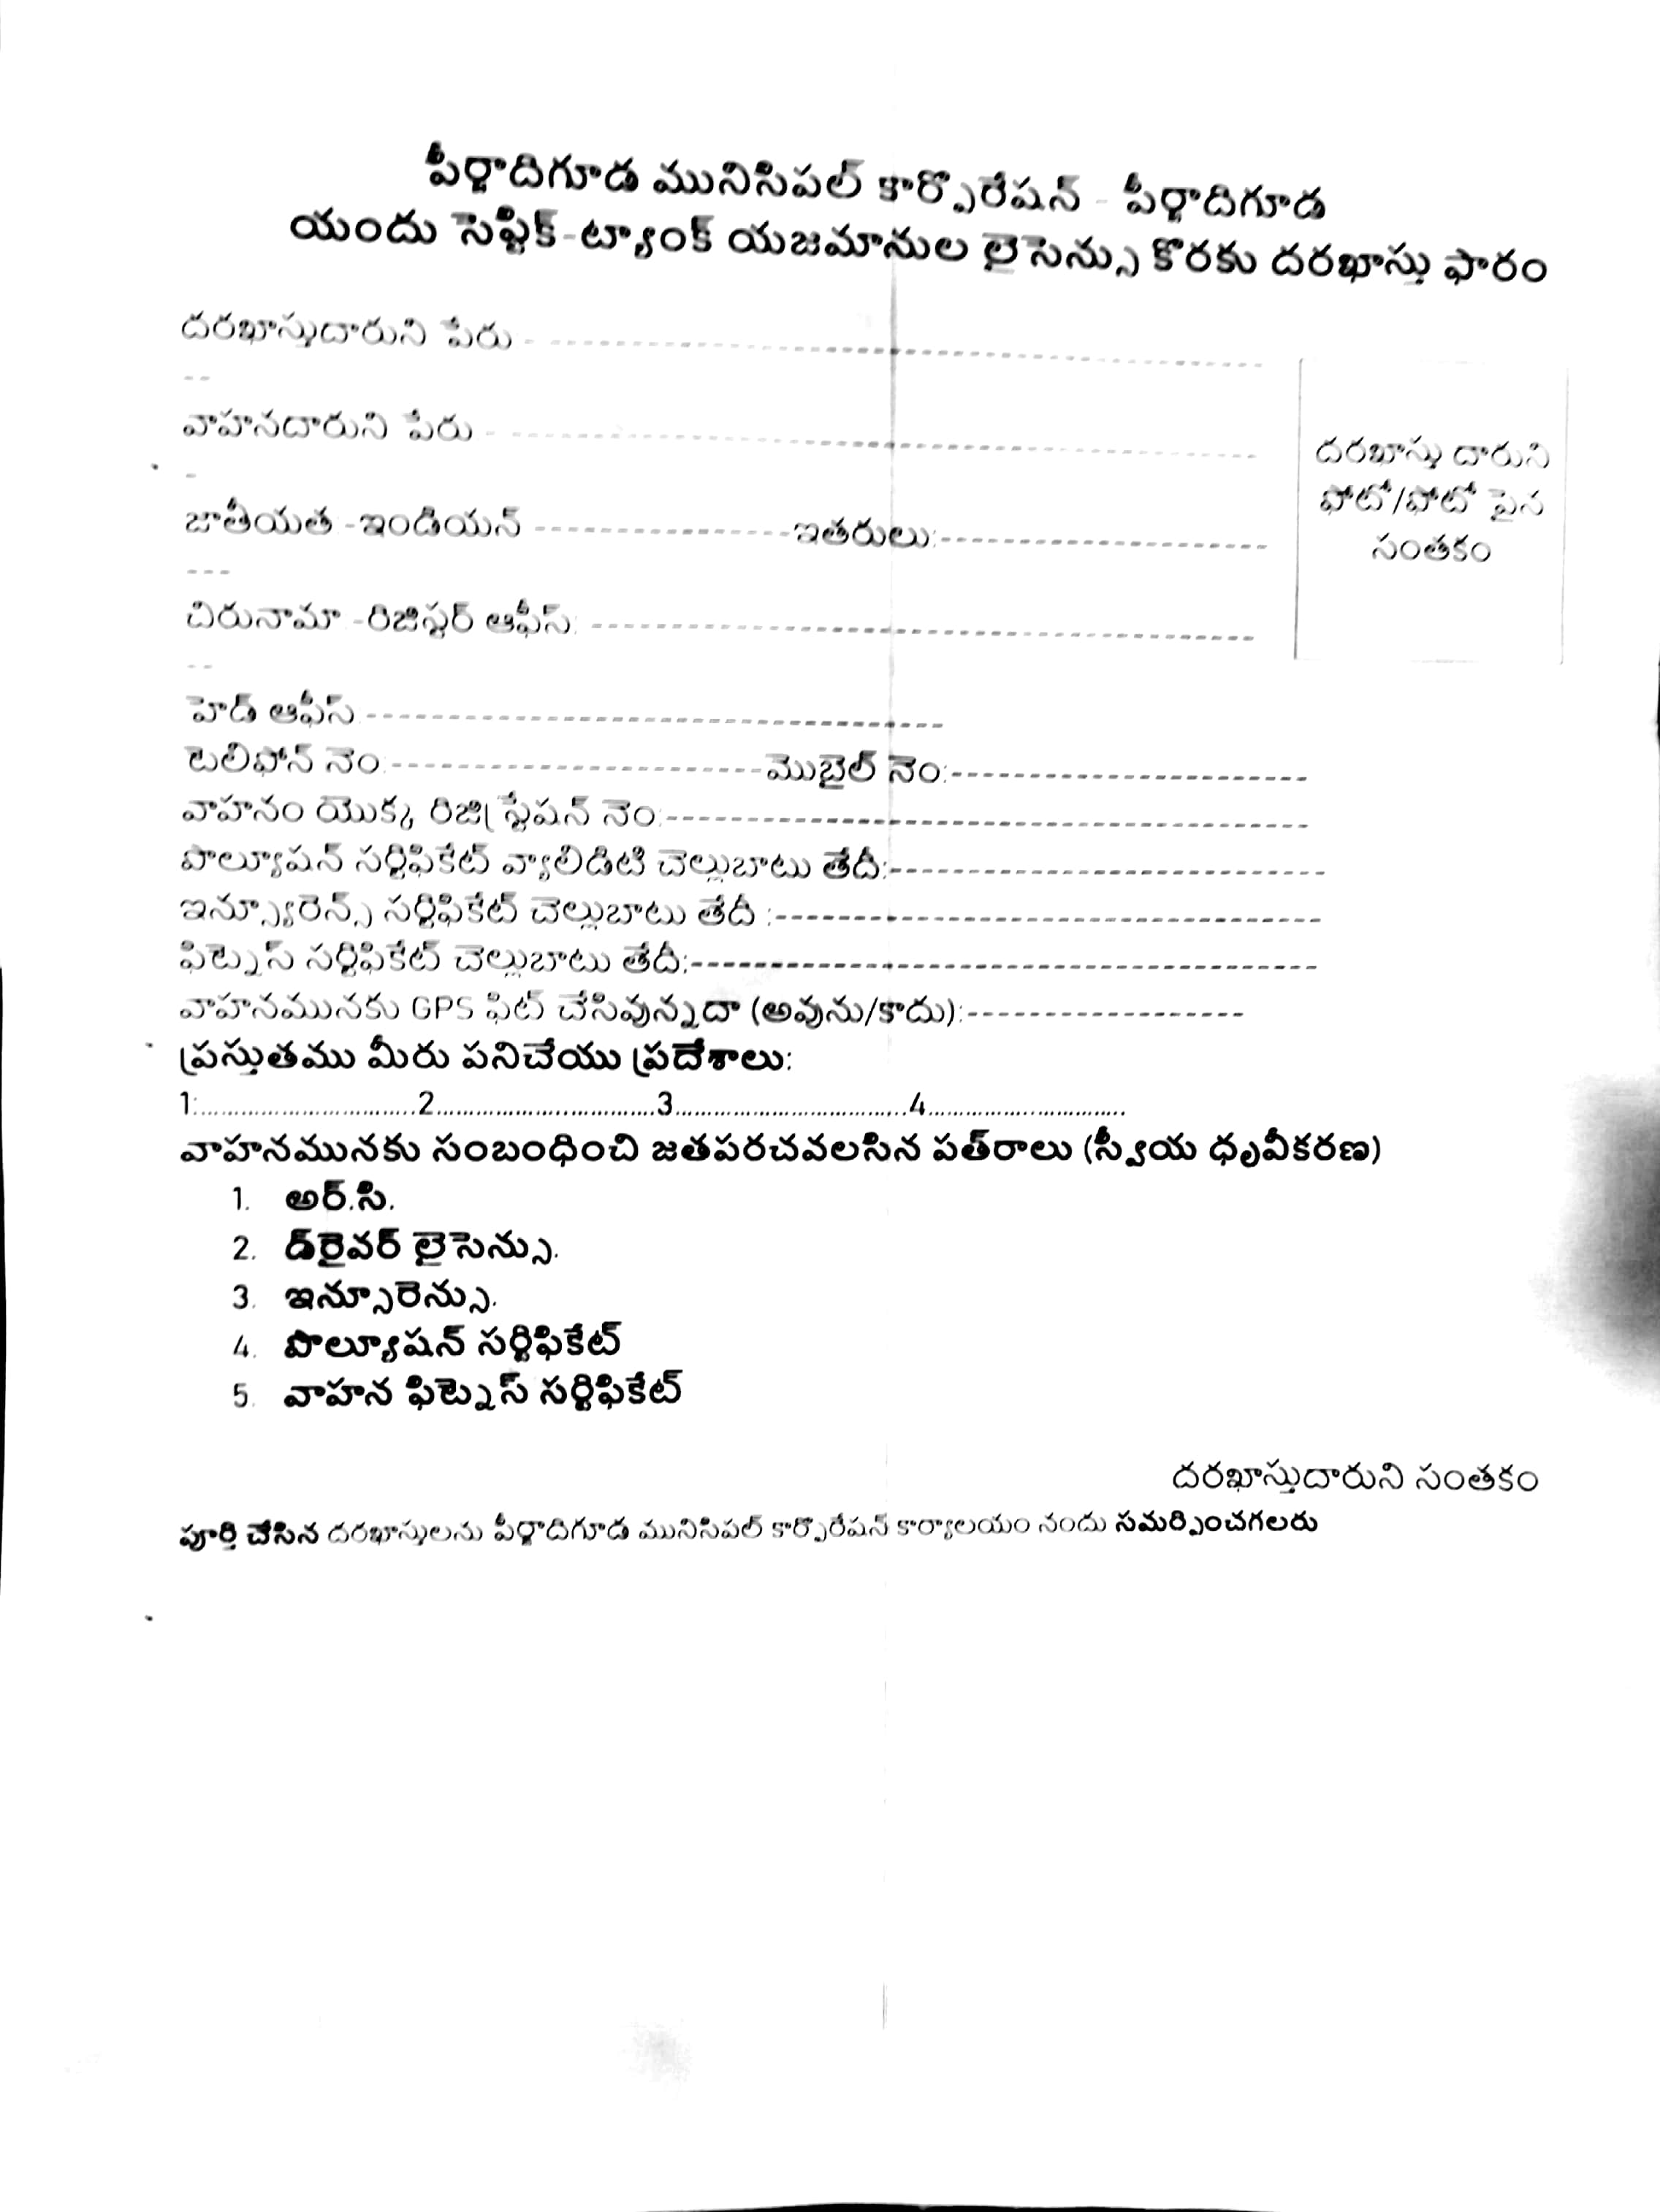 పీర్జాదిగూడ మునిసిపల్ కార్పొరేషన్ - పీర్జాదిగూడ
యందు సెప్టిక్-ట్యాంక్ యజమానుల లైసెన్సు కొరకు దరఖాస్తు ఫారం
దరఖాస్తుదారుని పేరు --------------------------------------------------
--
వాహనదారుని పేరు --------------------------------------------------
-
జాతీయత -ఇండియన్ -----------------ఇతరులు:---------------------
---
చిరునామా -రిజిస్టర్ ఆఫీస్: ------------------------------------------
--
దరఖాస్తు దారుని
ఫోటో/ఫోటో పైన
సంతకం
హెడ్ ఆఫీస్ -------------------------------------
టెలిఫోన్ నెం:------------------------మొబైల్ నెం:-----------------------
వాహనం యొక్క రిజిస్ట్రేషన్ నెం:-----------------------------------------
పొల్యూషన్ సర్టిఫికేట్ వ్యాలిడిటి చెల్లుబాటు తేదీ:----------------------------
ఇన్స్యూరెన్స్ సర్టిఫికేట్ చెల్లుబాటు తేదీ :-----------------------------------
ఫిట్నెస్ సర్టిఫికేట్ చెల్లుబాటు తేదీ:----------------------------------------
వాహనమునకు GPS ఫిట్ చేసివున్నదా (అవును/కాదు):------------------
ప్రస్తుతము మీరు పనిచేయు ప్రదేశాలు:
1:.................................2..................................3....................................4...............................
వాహనమునకు సంబంధించి జతపరచవలసిన పత్‌రాలు (స్వీయ ధృవీకరణ)
1. అర్.సి.
2. డ్‌రైవర్ లైసెన్సు.
3. ఇన్సూరెన్సు.
4. పొల్యూషన్ సర్టిఫికేట్
5. వాహన ఫిట్నెస్ సర్టిఫికేట్
దరఖాస్తుదారుని సంతకం
పూర్తి చేసిన దరఖాస్తులను పీర్జాదిగూడ మునిసిపల్ కార్పొరేషన్ కార్యాలయం నందు సమర్పించగలరు